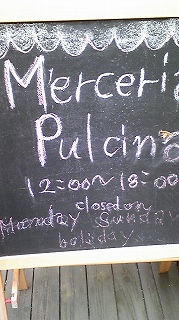 Merceria
Pulcino
12:00~18:00
closed on
Monday Sunday
holiday